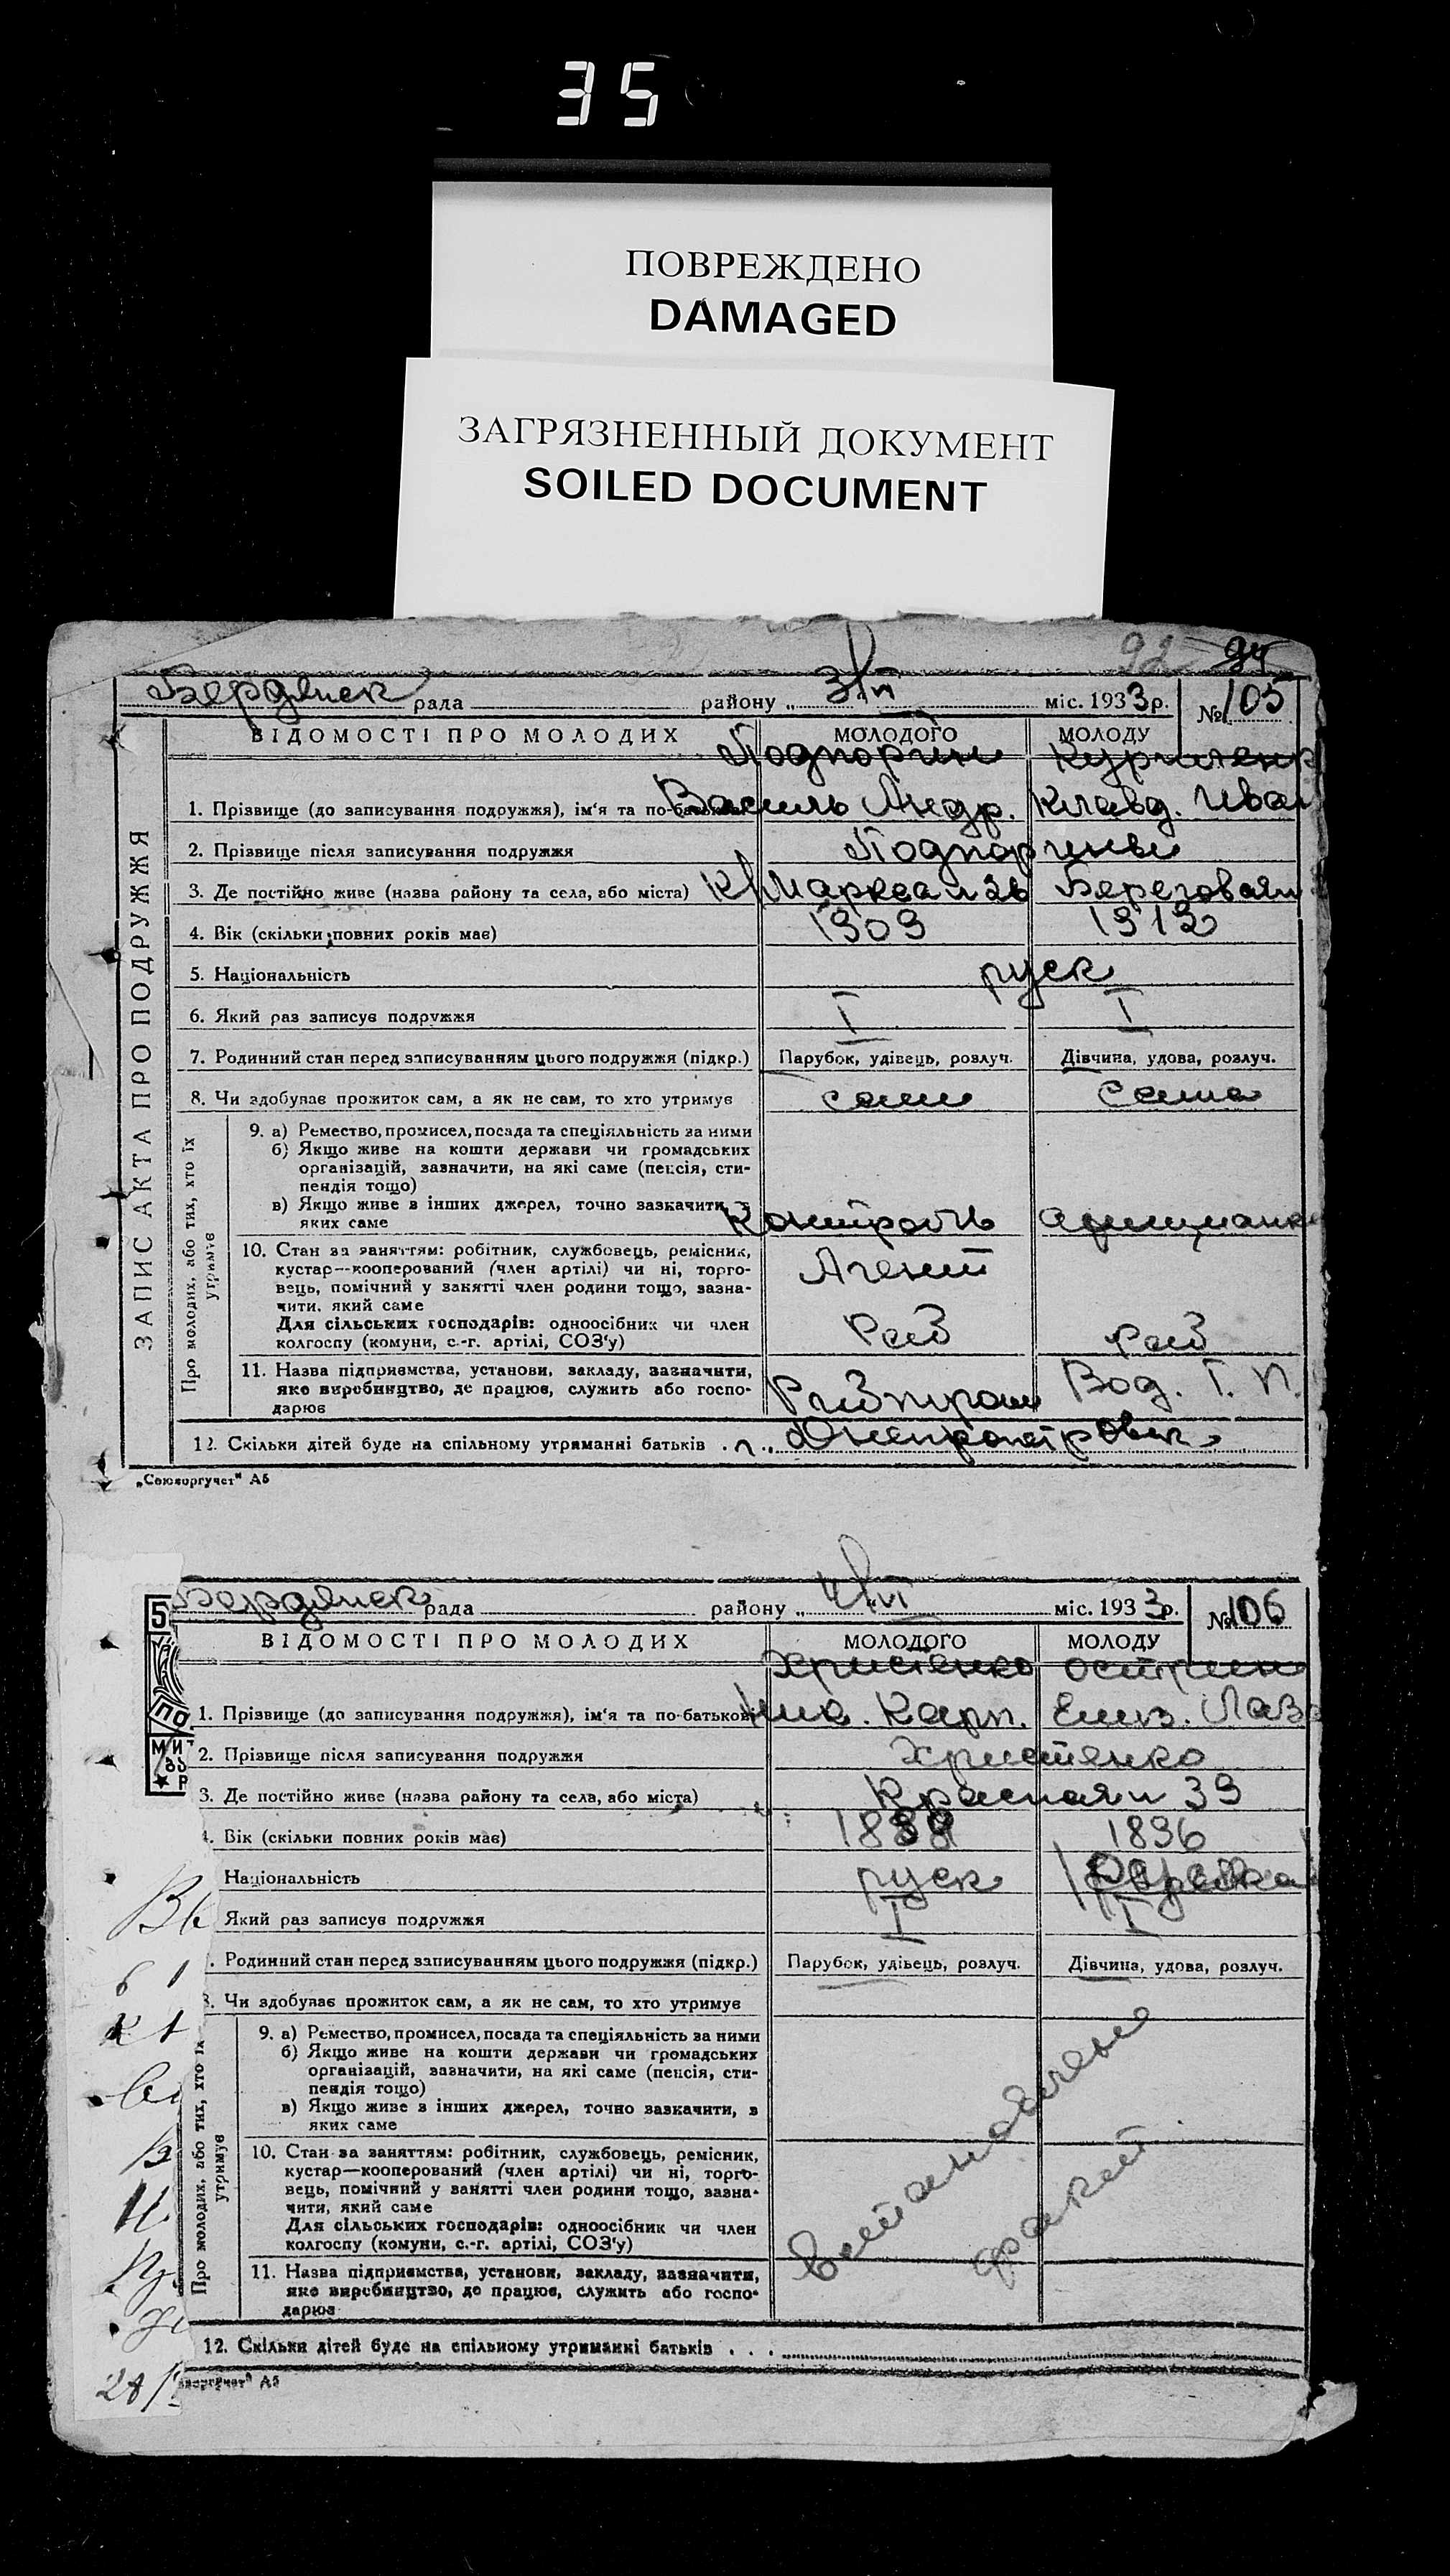 35
ПОВРЕЖДЕНО
DAMAGED
ЗАГРЯЗНЕННЫЙ ДОКУМЕНТ
SOILED DOCUMENT
92 94
Бердянск рада району „ 3/VI міс. 1933 р. № 105
ЗАПИС АКТА ПРО ПОДРУЖЖЯ
ВІДОМОСТІ ПРО МОЛОДИХ МОЛОДОГО МОЛОДУ
Подпорин
1. Прізвище (до записування подружжя), ім'я та по-батькові Василь Андр. Клавд. Иван
2. Прізвище після записування подружжя
3. Де постійно живе (назва району та села, або міста) К/Маркса Береговая
4. Вік (скільки повних років має) 1909 1912
5. Національність руск
6. Який раз записує подружжя I I
7. Родинний стан перед записуванням цього подружжя (підкр.) Парубок, удівець, розлуч. Дівчина, удова, розлуч.
8. Чи здобуває прожиток сам, а як не сам, то хто утримує сам сама
Про молодих, або тих, хто їх утримує
9. а) Ремество, промисел, посада та спеціяльність за ними
б) Якщо живе на кошти держави чи громадських
організацій, зазначити, на які саме (пенсія, сти-
пендія тощо)
в) Якщо живе з інших джерел, точно зазначити, з
яких саме
10. Стан за заняттям: робітник, службовець, ремісник,
кустар—кооперований (член артілі) чи ні, торго-
вець, помічний у занятті член родини тощо, зазна-
чити, який саме Агент
Для сільських господарів: одноосібник чи член
колгоспу (комуни, с.-г. артілі, СОЗ'у)
11. Назва підприємства, установи, закладу, зазначити,
яке виробництво, де працює, служить або госпо-
дарює Вод. Г. П.
12. Скільки дітей буде на спільному утриманні батьків
„Союзоргучет" А5
Бердянск рада району „ 4/VI міс. 1933 р. № 106
ВІДОМОСТІ ПРО МОЛОДИХ МОЛОДОГО МОЛОДУ
Христенко
1. Прізвище (до записування подружжя), ім'я та по-батькові Ник. Карп. Елиз. Лаза
2. Прізвище після записування подружжя Христенко
3. Де постійно живе (назва району та села, або міста) Красная 39
4. Вік (скільки повних років має) 1896
Національність руск
Який раз записує подружжя I I
. Родинний стан перед записуванням цього подружжя (підкр.) Парубок, удівець, розлуч. Дівчина, удова, розлуч.
8. Чи здобуває прожиток сам, а як не сам, то хто утримує
Про молодих, або тих, хто їх утримує
9. а) Ремество, промисел, посада та спеціяльність за ними
б) Якщо живе на кошти держави чи громадських
організацій, зазначити, на які саме (пенсія, сти-
пендія тощо)
в) Якщо живе з інших джерел, точно зазначити, з
яких саме
10. Стан за заняттям: робітник, службовець, ремісник,
кустар—кооперований (член артілі) чи ні, торго-
вець, помічний у занятті член родини тощо, зазна-
чити, який саме
Для сільських господарів: одноосібник чи член
колгоспу (комуни, с.-г. артілі, СОЗ'у)
11. Назва підприємства, установи, закладу, зазначити,
яке виробництво, де працює, служить або госпо-
дарює
12. Скільки дітей буде на спільному утриманні батьків . . .